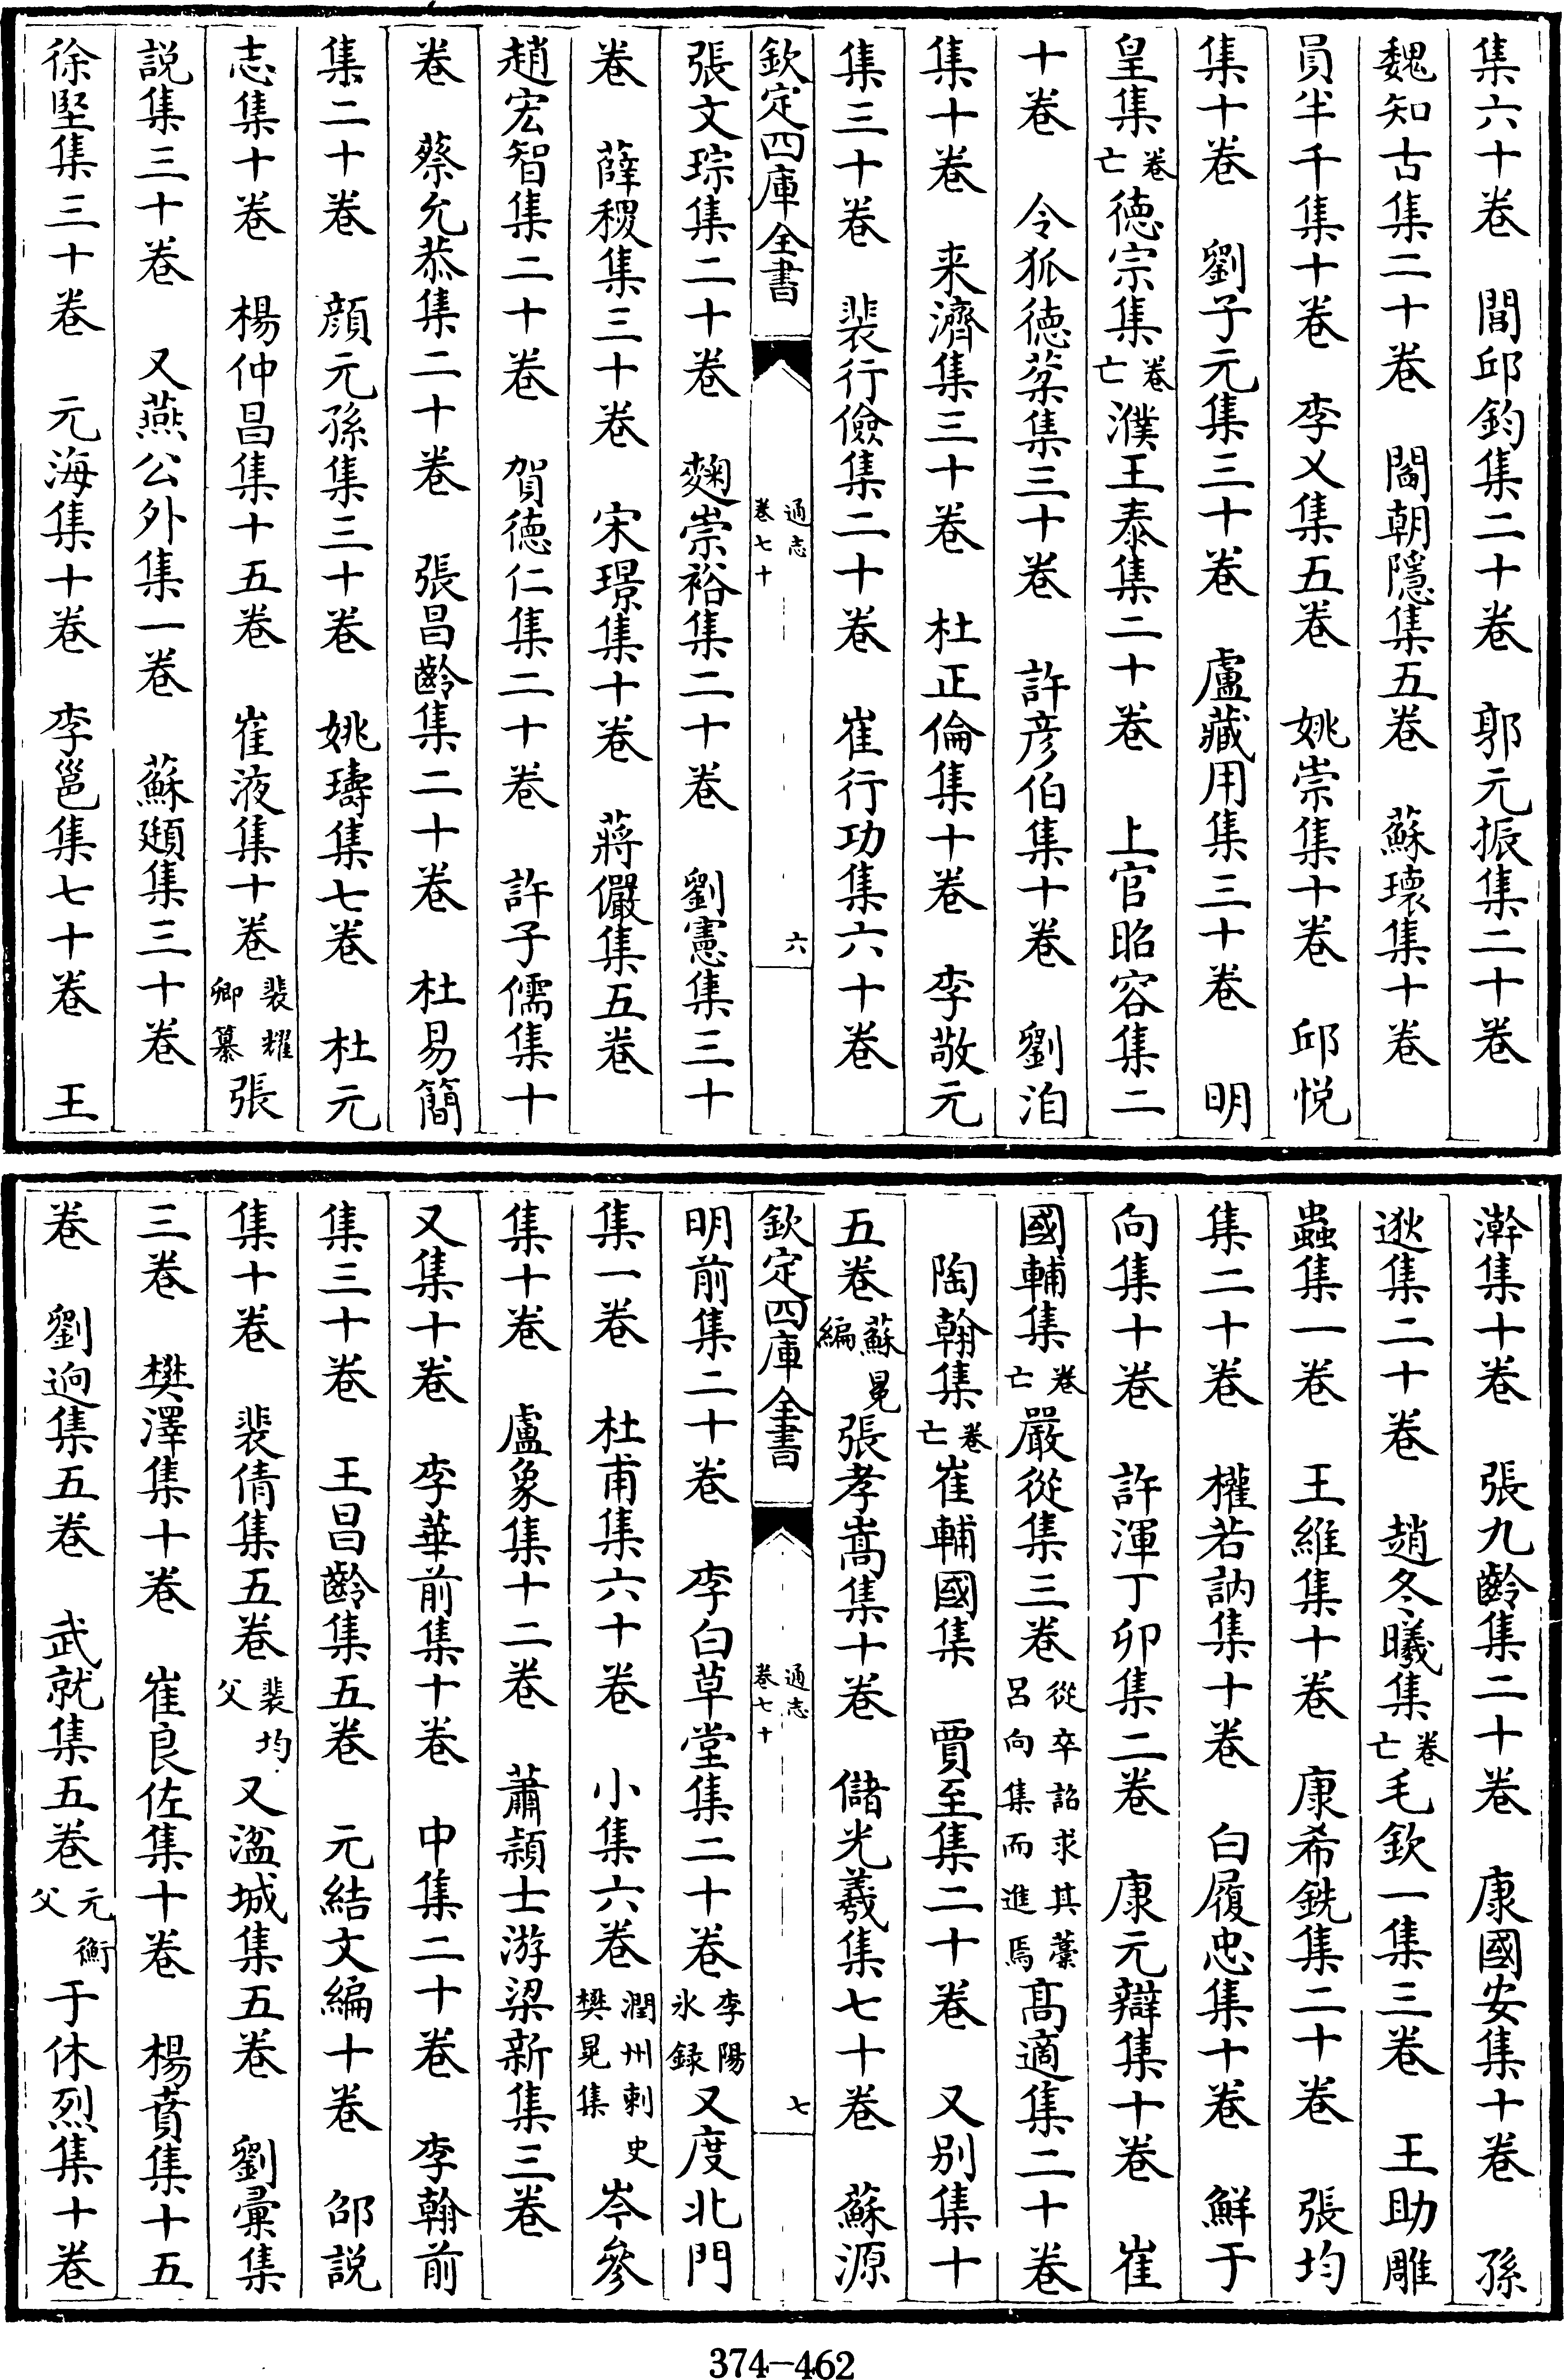 集六十卷　閭邱鈞集二十卷　郭元振集二十卷
魏知古集二十卷　閻朝隱集五卷　蘇瓌集十卷
員半千集十卷　李乂集五卷　姚崇集十卷　邱悦
集十卷　劉子元集三十卷　盧藏用集三十卷　明
皇集卷亡德宗集卷亡濮王泰集二十卷　上官昭容集二
十卷　令狐德棻集三十卷　許彦伯集十卷　劉洎
集十卷　来濟集三十卷　杜正倫集十卷　李敬元
集三十卷　裴行儉集二十卷　崔行功集六十卷
欽定四庫全書　通志卷七十　六
張文琮集二十卷　麴崇裕集二十卷　劉憲集三十
卷　薛稷集三十卷　宋璟集十卷　蔣儼集五卷
趙宏智集二十卷　賀德仁集二十卷　許子儒集十
卷　蔡允恭集二十卷　張昌齡集二十卷　杜易簡
集二十卷　顔元孫集三十卷　姚璹集七卷　杜元
志集十卷　楊仲昌集十五卷　崔液集十卷裴耀卿纂張
説集三十卷　又燕公外集一卷　蘇頲集三十卷
徐堅集三十卷　元海集十卷　李邕集七十卷　王
澣集十卷　張九齡集二十卷　康國安集十卷　孫
逖集二十卷　趙冬曦集卷亡毛欽一集三卷　王助雕
蟲集一卷　王維集十卷　康希銑集二十卷　張均
集二十卷　權若訥集十卷　白履忠集十卷　鮮于
向集十卷　許渾丁卯集二卷　康元辯集十卷　崔
國輔集卷亡嚴從集三卷從卒詔求其藁呂向集而進焉髙適集二十卷
陶翰集卷亡崔輔國集　賈至集二十卷　又別集十
五卷蘇冕編張孝嵩集十卷　儲光羲集七十卷　蘇源
欽定四庫全書　通志卷七十　七
明前集二十卷　李白草堂集二十卷李陽冰録又度北門
集一卷　杜甫集六十卷　小集六卷潤州刺史樊晃集岑參
集十卷　盧象集十二卷　蕭頴士游梁新集三卷
又集十卷　李華前集十卷　中集二十卷　李翰前
集三十卷　王昌齡集五卷　元結文編十卷　邵説
集十卷　裴倩集五卷裴均父又湓城集五卷　劉彚集
三卷　樊澤集十卷　崔良佐集十卷　楊賁集十五
卷　劉迥集五卷　武就集五卷元衡父于休烈集十卷
374-462